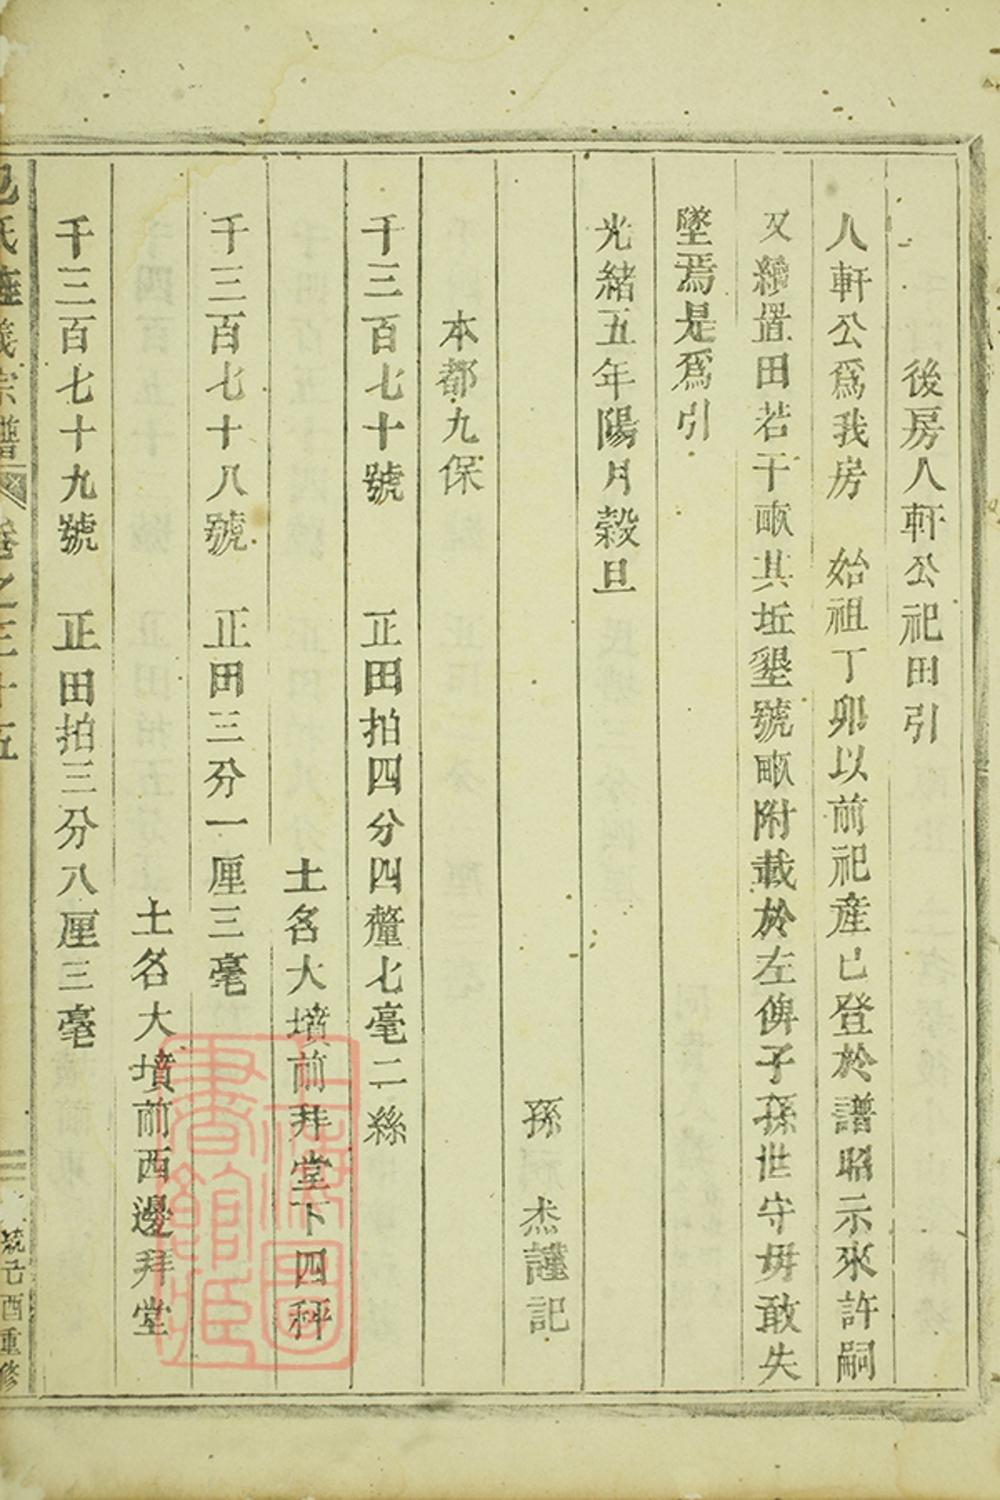 後房人軒公祀田引
人軒公爲我房　始祖丁卯以前祀産已登於譜昭示來許嗣
又續置田若干畝其坵墾號畝附載於左俾子孫世守毋敢失
墜焉是爲引
光緒五年陽月穀旦
孫　杰謹記
本都九保
千三百七十號　正田拍四分四釐七毫二絲
土名大墳前拜堂下四秤
千三百七十八號　正田三分一厘三毫
土名大墳前西邊拜堂
千三百七十九號　正田拍三分八厘三毫
氏　義宗譜　卷之三十五　統己酉重修
上海圖書館藏